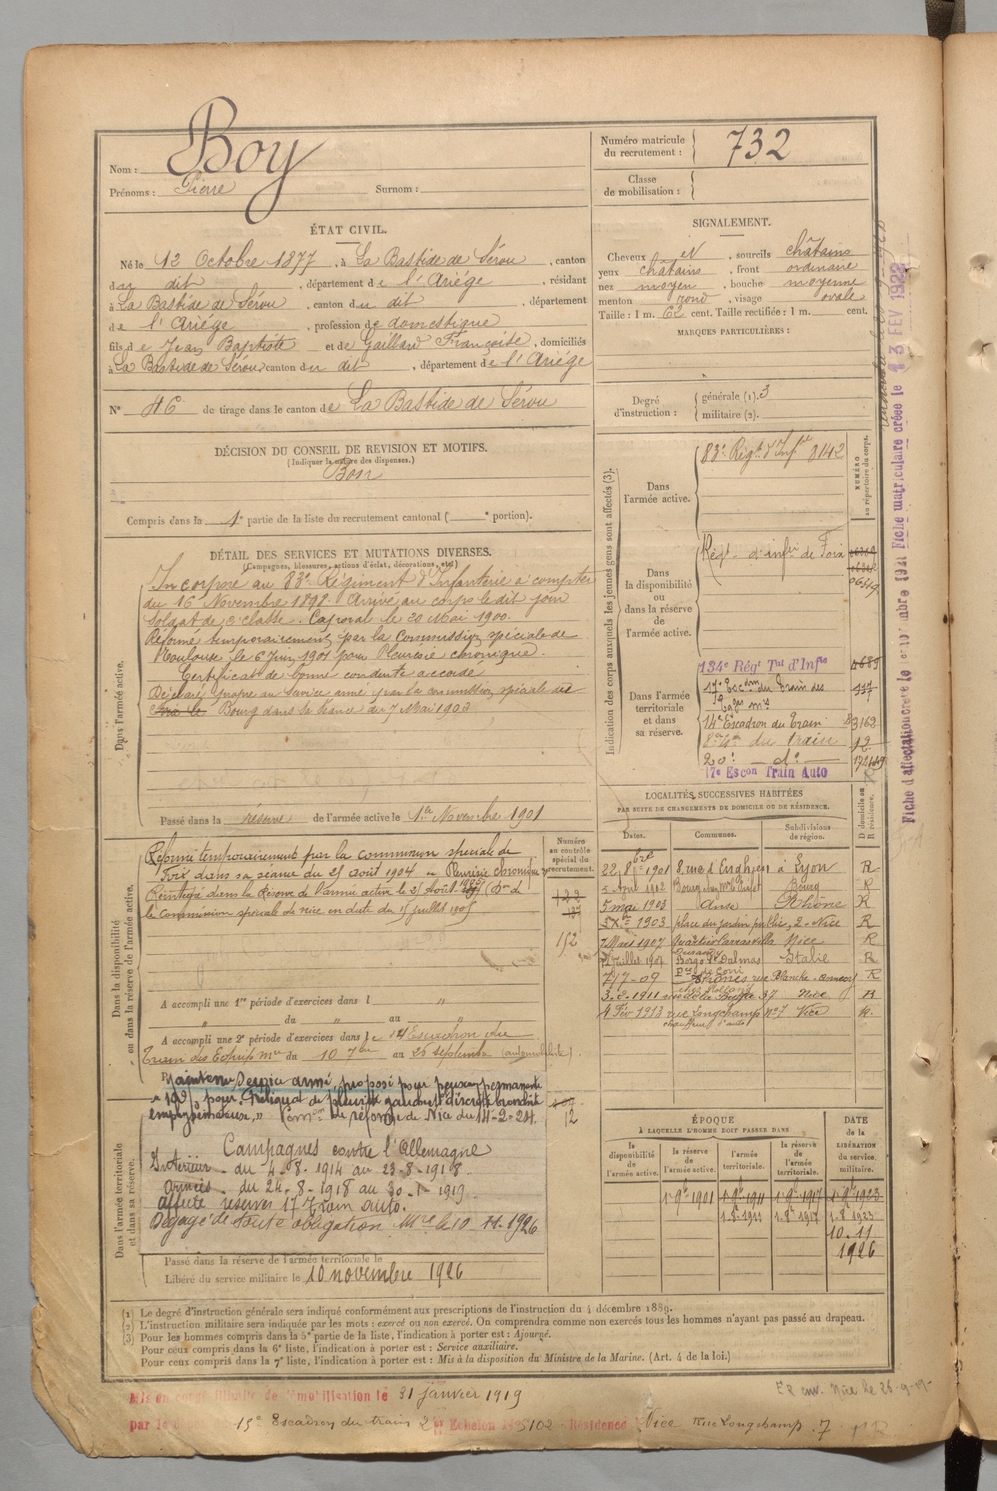 Nom : Boy
Prénoms : Pierre Surnom :
Numéro matricule du recrutement : 732
Classe de mobilisation :
ÉTAT CIVIL.
Né le 12 Octobre 1877, à La Bastide de Sérou, canton
du dit, département de l'Ariége, résidant
à La Bastide de Sérou, canton du dit, département
de l'Ariége, profession de domestique
fils de Jean Baptiste et de Gaillard Françoise, domiciliés
à La Bastide de Sérou, canton du dit, département de l'Ariége
N° 46 de tirage dans le canton de La Bastide de Sérou
SIGNALEMENT.
Cheveux et, sourcils châtains
yeux châtains, front ordinaire
nez moyen, bouche moyenne
menton rond, visage ovale
Taille : 1 m. 62 cent. Taille rectifiée : 1 m. cent.
MARQUES PARTICULIÈRES :
Degré d'instruction : générale (1). 3
militaire (2).
DÉCISION DU CONSEIL DE REVISION ET MOTIFS.
(Indiquer la nature des dispenses.)
Bon
Compris dans la 1e partie de la liste du recrutement cantonal ( e portion).
DÉTAIL DES SERVICES ET MUTATIONS DIVERSES.
(Campagnes, blessures, actions d'éclat, décorations, etc.)
Dans l'armée active.
Incorporé au 83e Régiment d'Infanterie à compter
du 16 Novembre 1898. Arrivé au corps le dit jour
Soldat de 2e classe. Caporal le 20 Mai 1900.
Réformé temporairement par la Commission spéciale de
Toulouse le 6 Juin 1901 pour Pleurésie chronique.
Certificat de bonne conduite accordé
Déclaré propre au service armé par la commission spéciale de
Bourg dans sa séance du 7 Mai 1903
Passé dans la réserve de l'armée active le 1er Novembre 1901
Indication des corps auxquels les jeunes gens sont affectés (3).
NUMÉRO au répertoire du corps.
Dans l'armée active.
83e Régt d'Infie 3142
Dans la disponibilité ou dans la réserve de l'armée active.
Régt d'infie de Foix
Dans l'armée territoriale et dans sa réserve.
134e Régt Tal d'Infie
17e Escdon du Train des
Eqges mres
14e Escadron du Train 3162
du train 12
20e do
17e Escon Train Auto
Fiche matriculaire créée le 13 FEV 1922
LOCALITÉS SUCCESSIVES HABITÉES
PAR SUITE DE CHANGEMENTS DE DOMICILE OU DE RÉSIDENCE.
Dates. Communes. Subdivisions de région. D domicile ou R résidence.
22 8bre 1901 8 rue d'Enghien à Lyon R
5 Avril 1902 Bourg Bourg R
5 mai 1903 Anse Rhône R
1903 place du jardin public, 2 - Nice R
7 Mars 1907 Nice R
Juillet 1907 Borgo St Dalmas Italie R
7-7-09 rue Blanche R
1911 37 Nice R
4 Fév 1913 rue Longchamp n° 7 Nice R.
chauffeur d'auto
Dans la disponibilité ou dans la réserve de l'armée active.
Numéro au contrôle spécial du recrutement.
Réformé temporairement par la commission spéciale de
Foix dans sa séance du 25 août 1904 - Pleurésie chronique
Réintégré dans la Réserve de l'armée active le 25 Août
la commission spéciale de Nice en date du 15 juillet 1905
152
A accompli une 1re période d'exercices dans l "
" du " au "
A accompli une 2e période d'exercices dans le 14 Escadron du
Train des Equip. Mres du 10 7bre au 26 septembre (automobiliste).
Dans l'armée territoriale et dans sa réserve.
Maintenu Service armé, proposé pour pension permanente
10% pour Reliquat de pleurésie gauche
emphysémateux, Comon de réforme de Nice du 14-2-24.
12
Campagnes contre l'Allemagne
Intérieur - du 4-8-1914 au 23-8-1918.
Armées - du 24-8-1918 au 30-1-1919.
Affecté réserves 17 Train Auto.
Dégagé de toute obligation Mre le 10-11-1926
Passé dans la réserve de l'armée territoriale le
Libéré du service militaire le 10 novembre 1926
ÉPOQUE
À LAQUELLE L'HOMME DOIT PASSER DANS
DATE de la LIBÉRATION du service militaire.
la disponibilité de l'armée active. la réserve de l'armée active. l'armée territoriale. la réserve de l'armée territoriale.
1er 9bre 1901 1er 9bre 1911 1er 9bre 1917 1er 9bre 1923
1.8.1911 1.8.1917 1.8.1923
10.11
1926
(1) Le degré d'instruction générale sera indiqué conformément aux prescriptions de l'instruction du 4 décembre 1889.
(2) L'instruction militaire sera indiquée par les mots : exercé ou non exercé. On comprendra comme non exercés tous les hommes n'ayant pas passé au drapeau.
(3) Pour les hommes compris dans la 5e partie de la liste, l'indication à porter est : Ajourné.
Pour ceux compris dans la 6e liste, l'indication à porter est : Service auxiliaire.
Pour ceux compris dans la 7e liste, l'indication à porter est : Mis à la disposition du Ministre de la Marine. (Art. 4 de la loi.)
Mis en congé illimité de démobilisation le 31 janvier 1919
par le dépôt 15e Escadron du train 2e Echelon N° 5102 Résidence Nice rue Longchamp. 7